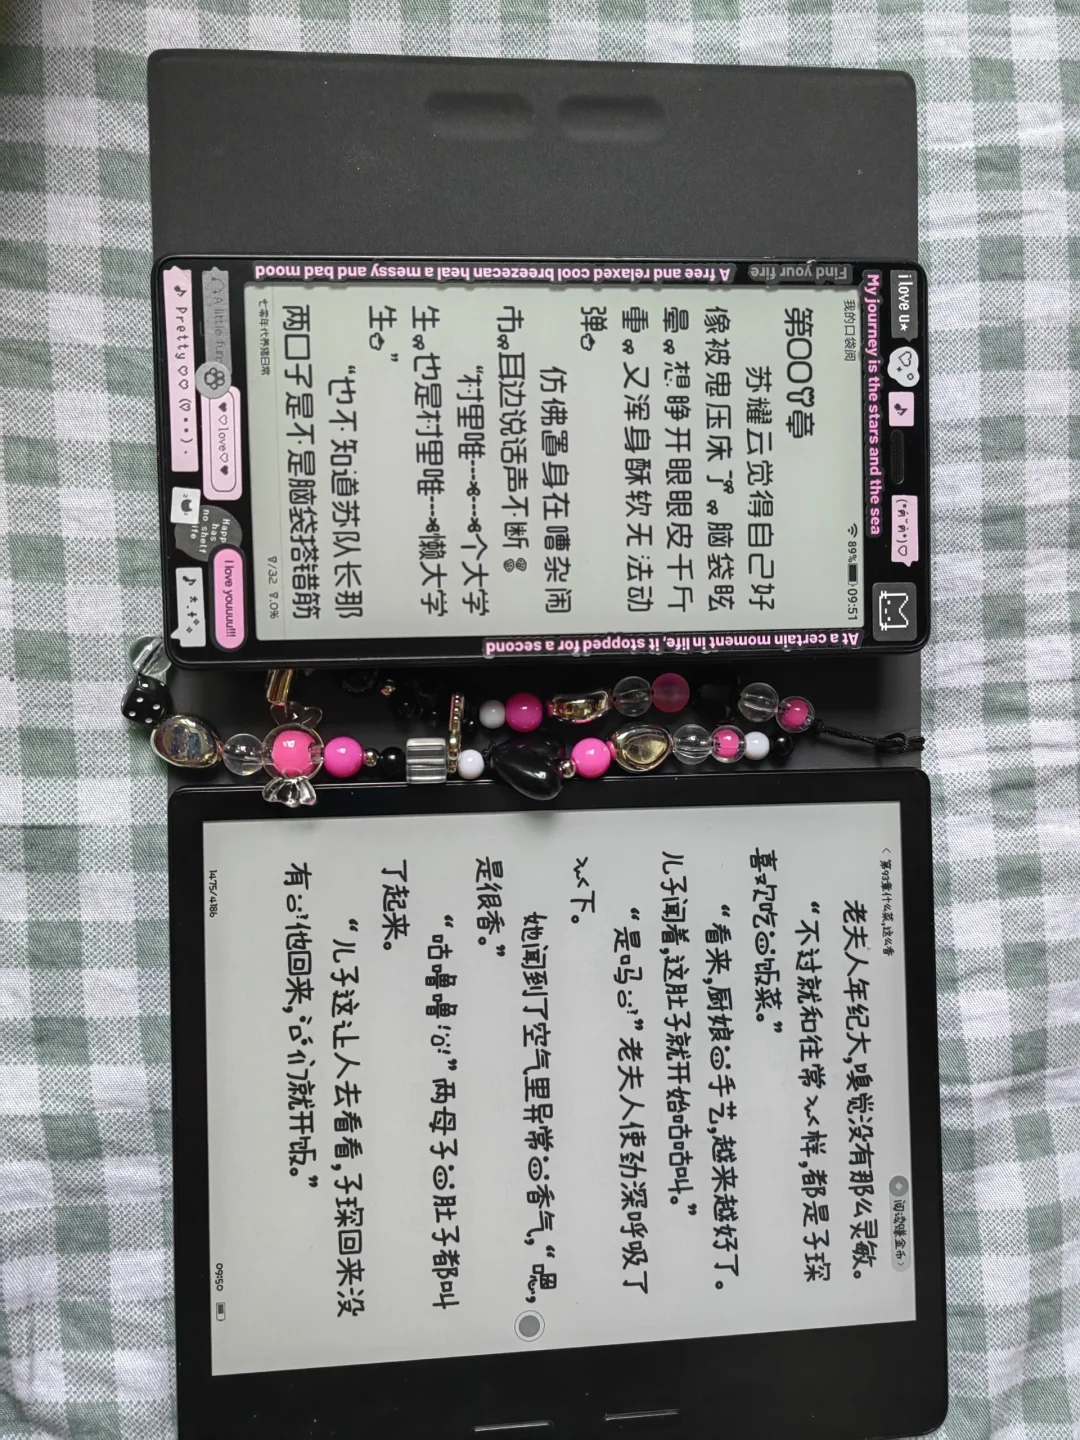 我的口袋阅
89% 09:51
第001章
苏耀云觉得自己好
像被鬼压床了。脑袋眩
晕。想睁开眼眼皮千斤
重。又浑身酥软无法动
弹。
仿佛置身在嘈杂闹
市。耳边说话声不断。
“村里唯一一个大学
生。也是村里唯一懒大学
生。”
“也不知道苏队长那
两口子是不是脑袋搭错筋
七零年代养猪日常
1/32 1.0%
Find your fire
A free and relaxed cool breezecan heal a messy and bad mood
i love u★
My journey is the stars and the sea
At a certain moment in life, it stopped for a second
Pretty♡♡
A little fun
♥♡love♡♥
Happ
has
no shelf
life
I love youuuu!!!
< 第93章什么菜,这么香
阅读赚金币>
老夫人年纪大,嗅觉没有那么灵敏。
“不过就和往常一样,都是子琛
喜欢吃的饭菜。”
“看来,厨娘的手艺,越来越好了。
儿子闻着,这肚子就开始咕咕叫。”
“是吗?”老夫人使劲深呼吸了
一下。
她闻到了空气里异常的香气,“嗯,
是很香。”
“咕噜噜!”两母子的肚子都叫
了起来。
“儿子这让人去看看,子琛回来没
有?他回来,我们就开饭。”
1475/4186
09:50